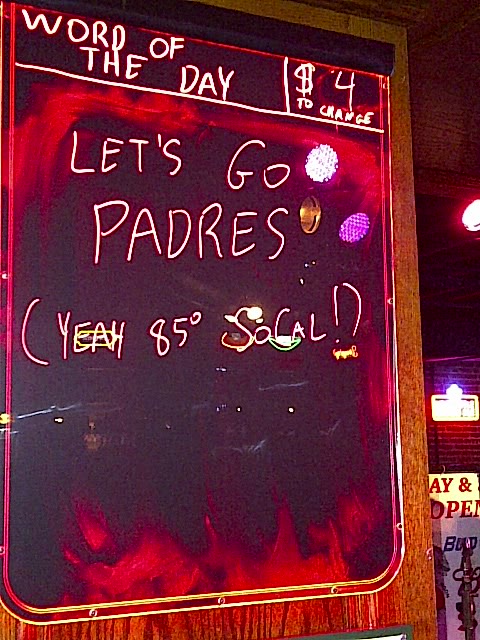 WORD OF
THE DAY
$ 4
TO CHANGE
LET'S GO
PADRES
(YEAH 85° SOCAL!)
AY &
OPEN
BUD